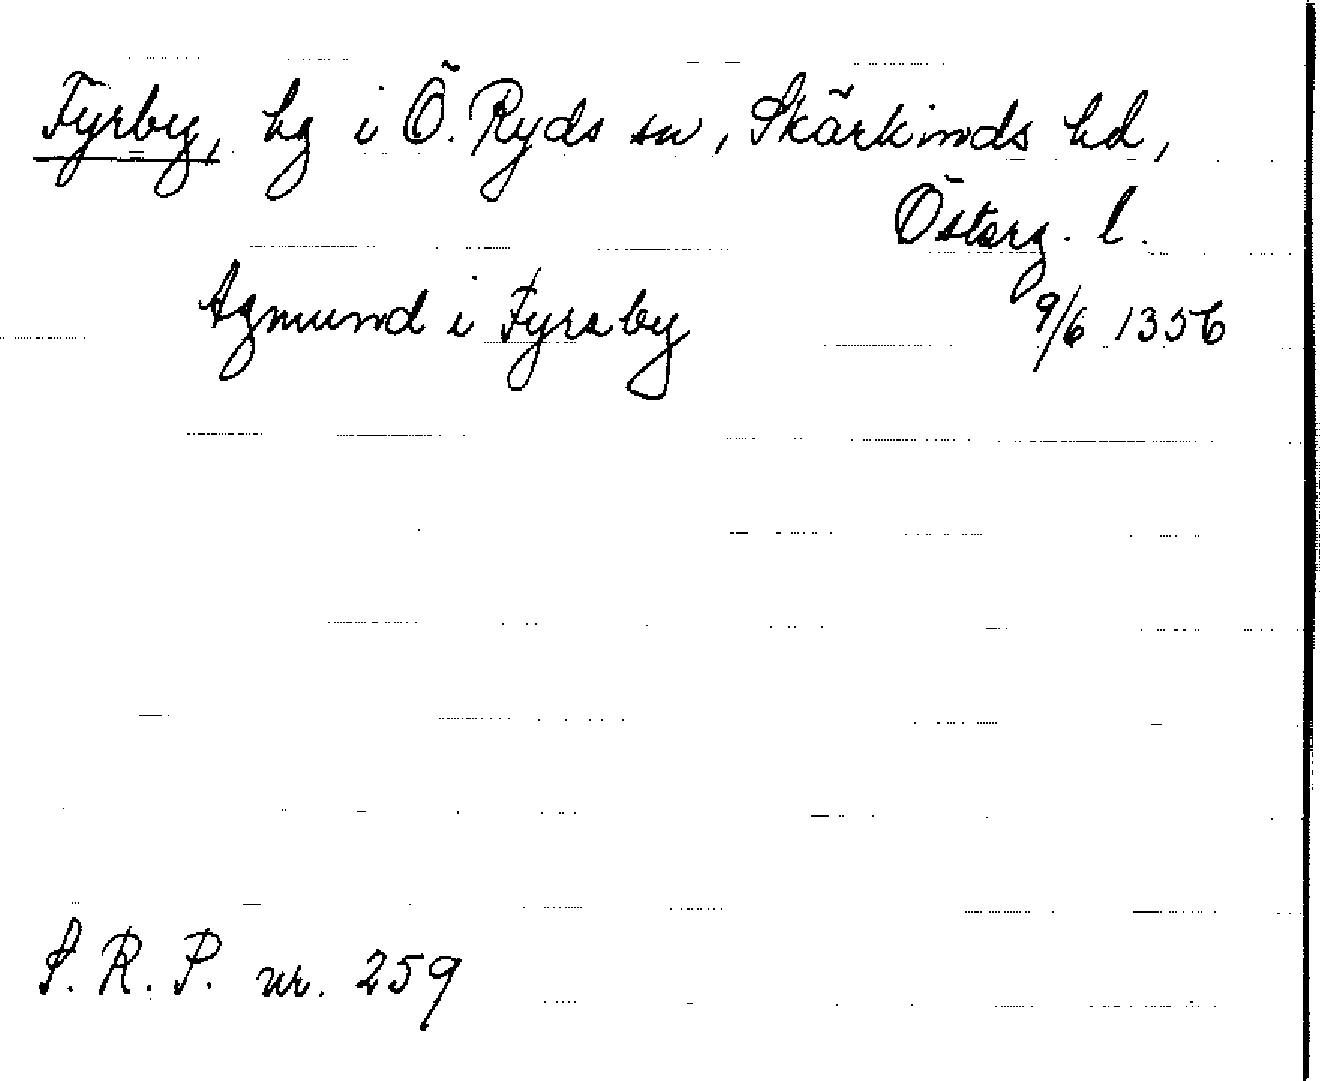 Fyrby, hg i Ö. Ryds sn, Skärkinds hd,
Österg. l.
Agmund i Fyrsby 9/6 1356
S. R. P. nr. 259